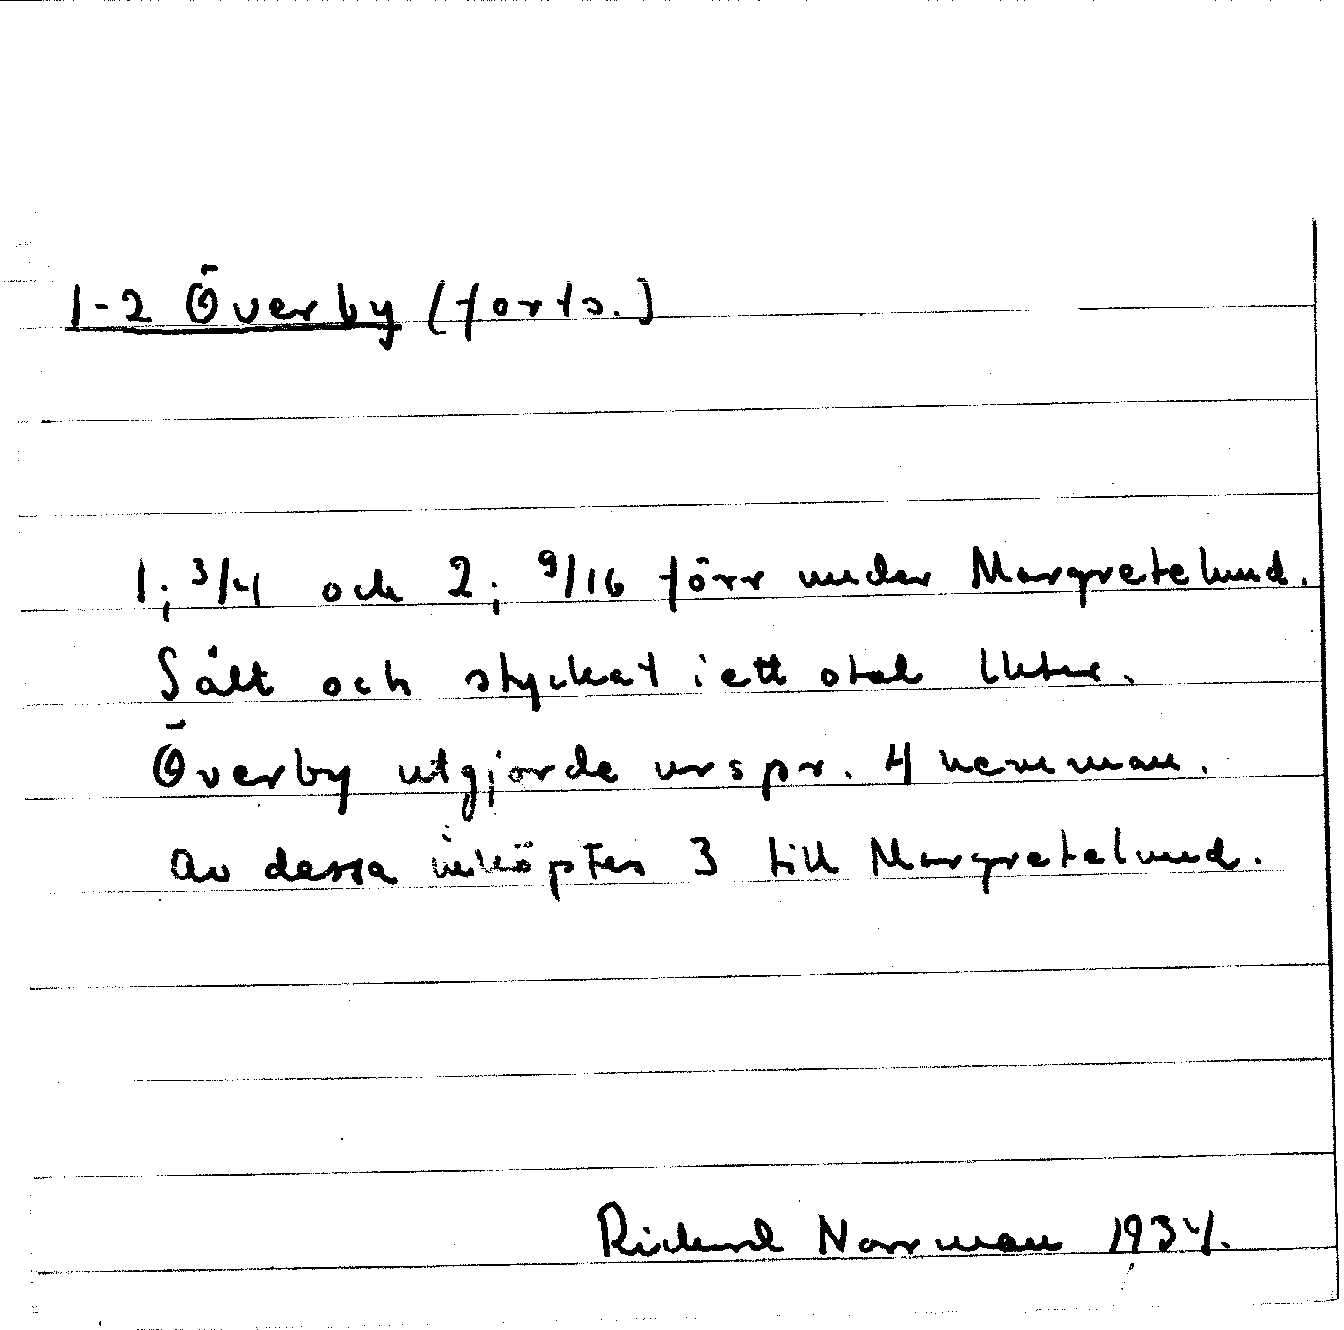 1-2 Överby (forts.)
1; 3/4 och 2; 9/16 förr under Margretelund.
Sålt och styckat i ett otal lotter.
Överby utgjorde urspr. 4 hemman.
Av dessa inköptes 3 till Margretelund.
Rickard Norrman 1934.